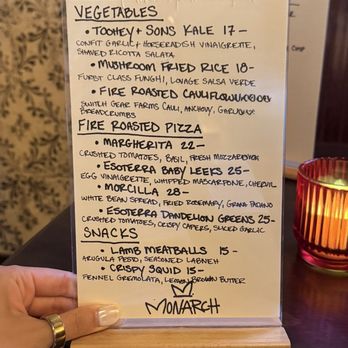 VEGETABLES
• TOOHEY + SONS KALE 17 -
CONFIT GARLIC + HORSERADISH VINAIGRETTE,
SHAVED RICOTTA SALATA
• MUSHROOM FRIED RICE 18-
FURST CLASS FUNGHI, LOVAGE SALSA VERDE
• FIRE ROASTED CAULIFLOWER
SWITCH GEAR FARMS CAULI, ANCHOVY,
BREADCRUMBS
FIRE ROASTED PIZZA
• MARGHERITA 22-
CRUSHED TOMATOES, BASIL, FRESH MOZZARELLA
• ESOTERRA BABY LEEKS 25-
EGG VINAIGRETTE, WHIPPED MASCARPONE, CHERVIL
• MORCILLA 28-
WHITE BEAN SPREAD, FRIED ROSEMARY, GRANA PADANO
• ESOTERRA DANDELION GREENS 25-
CRUSHED TOMATOES, CRISPY CAPERS, SLICED GARLIC
SNACKS
• LAMB MEATBALLS 15-
ARUGULA PESTO, SEASONED LABNEH
• CRISPY SQUID 15-
FENNEL GREMOLATA, LEMON BROWN BUTTER
MONARCH